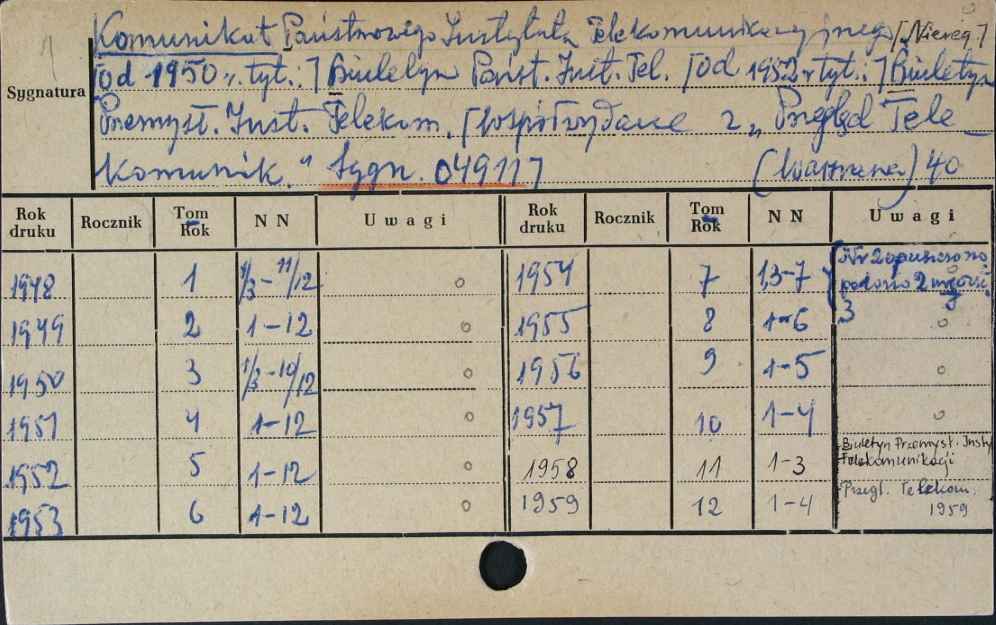 Sygnatura
Komunikat Państwowego Instytutu Telekomunikacyjnego [Niereg.]
[od 1950 r. tyt.:] Biuletyn Państ. Inst. Tel. [od 1952 r. tyt.:] Biuletyn
Przemysł. Inst. Telekom. [współwydane z „Przegląd Tele-
komunik." Sygn. 04911] (Warszawa) 40
Rok druku Rocznik Tom Rok NN Uwagi Rok druku Rocznik Tom Rok NN Uwagi
1948 1 1/3-11/12 1954 7 1,3-7 Nr 2 opuszczono
3
1949 2 1-12 1955 8 1-6
1950 3 1/3-10/12 1956 9 1-5
1951 4 1-12 1957 10 1-4
1952 5 1-12 1958 11 1-3 Biuletyn Przemysł. Insty
Telekomunikacji
1953 6 1-12 1959 12 1-4 Przegl. Telekom.
1959